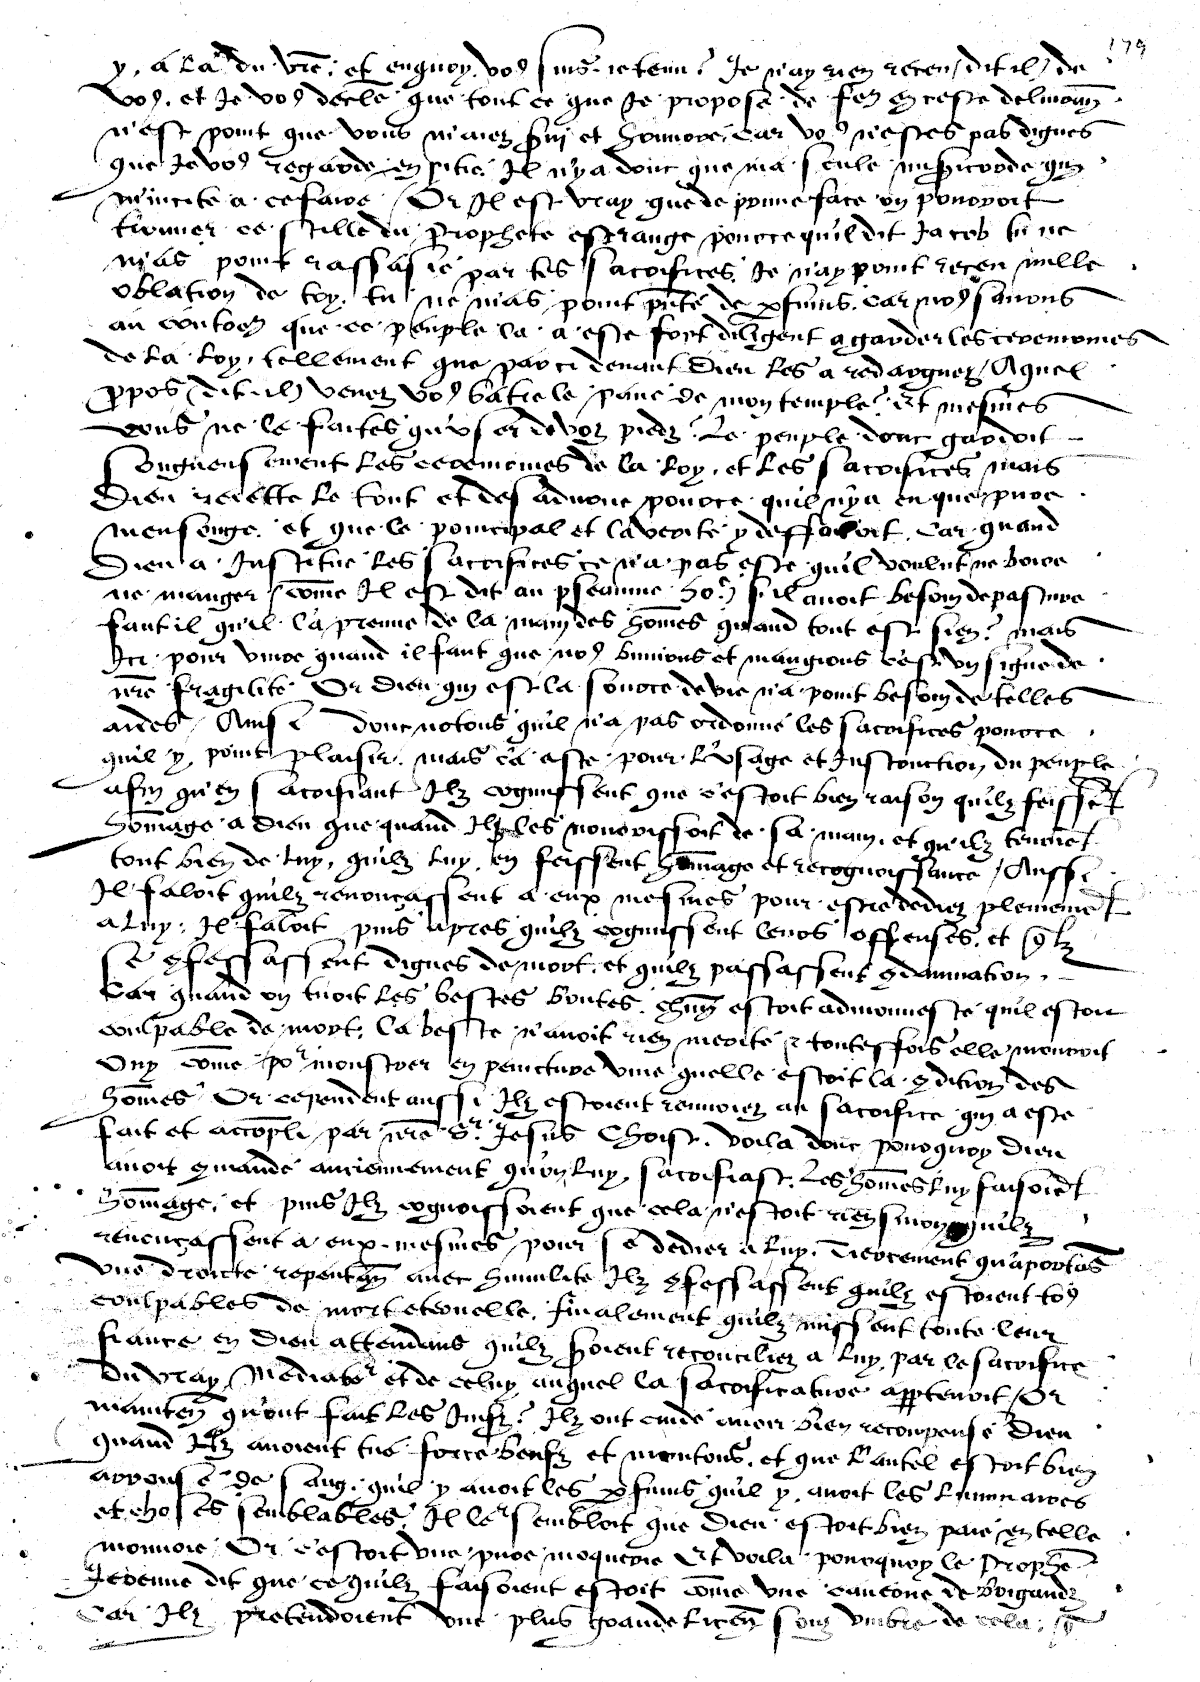 179
y, a la du vre, et enquoy vos suis je tenu? Je n'ay rien receu, dit il, de
vos, et Je vos decle que tout ce que Je propose de fe en ceste delivran
n'est point que vous m'aiez servi et honnore, car vos n'estes pas dignes
que Je vos regarde en pitie. Il n'y a donc que ma seule misericorde qui
m'incite a ce faire. Or Il est vray que de prime face on pourroit
trouver ce stille du Prophete estrange pource qu'il dit Jacob tu ne
m'as point rassasie par tes sacrifices. Je n'ay point receu nulle
oblation de toy, tu ne m'as point pnte de pfums. Car nos savons
au contre que ce peuple la a este fort diligent a garder les ceremonies
de la loy, tellement que par ci devant Dieu les a redarguez, A quel
propos (dit il) venez vos batre le pave de mon temple? Et mesmes
vous ne le faites qu'user de voz piedz. Le peuple donc gardoit
songneusement les ceremonies de la loy, et les sacrifices, mais
Dieu rejette le tout et desadvoue pource qu'il n'y a eu que pure
mensonge, et que le principal et la verite y deffaloit. Car quand
Dieu a Institue les sacrifices ce n'a pas este qu'il voulut ne boire
ne manger (come Il est dit au pseaume 50) s'il avoit besoin de pasture
faut il qu'il la prenne de la main des homes quand tout est sien? mais
Ici pour vivre quand il faut que nos buvions et mangions c'est un signe de
nre fragilite. Or Dieu qui est la source de vie n'a point besoin de telles
aides. Ainsi donc notons qu'il n'a pas ordonne les sacrifices pource
qu'il y print plaisir, mais c'a este pour l'usage et Instruction du peuple
afin qu'en sacrifiant Ilz cognussent que c'estoit bien raison qu'ilz feisset
homage a Dieu que quand Il les nourrissoit de sa main, et qu'ilz tenoiet
tout bien de luy, qu'ilz luy en feissent homage et recognoissance, Aussi
Il faloit qu'ilz renonçassent a eux mesmes pour estre dediez plenemet
a luy, Il faloit puis apres qu'ilz cognussent leurs offenses, et qlz
se 9fessassent dignes de mort, et qu'ilz passassent 9damnation.
Car quand on tuoit les bestes brutes, chun estoit admonneste qu'il estoit
coulpable de mort. La beste n'avoit rien merite & toutesfois elle mouroit
Ouy come por monstrer en peincture vive quelle estoit la 9dition des
homes. Or cependent aussi Ilz estoient renvoiez au sacrifice qui a este
fait et accopli par nre Sr. Jesus Christ. Voila donc pourquoy Dieu
avoit 9mande anciennement qu'on luy sacrifiast. Les homes luy faisoiet
homage, et puis Ilz cognoissoient que cela n'estoit rien sinon qu'ilz
renonçassent a eux mesmes, pour se dedier a luy. Tiercement qu'aportas
une droicte repentan avec humilite Ilz 9fessassent qu'ilz estoient tos
coulpables de mort eternelle. finalement qu'ilz missent toute leur
fiance en Dieu attendans qu'ilz seroient reconciliez a luy par le sacrifice
du vray Mediater et de celuy auquel la sacrificature apptenoit, Or
mainten qu'ont fait les Juifz? Ilz ont cuide avoir bien recompense Dieu
quand Ilz avoient tue force beufz et moutons, et que l'autel estoit bien
arrouse de sang, qu'il y avoit les pfums qu'il y avoit les luminaires
et choses semblables. Il ler sembloit que Dieu estoit bien paie en telle
monnoie. Or c'estoit une pure moquerie Et voila pourquoy le Prophe
Jeremie dit que ce qu'ilz faisoient estoit come une caverne de brigandz
Car Ilz pretendoient une plus grande licen souz umbre de cela, q